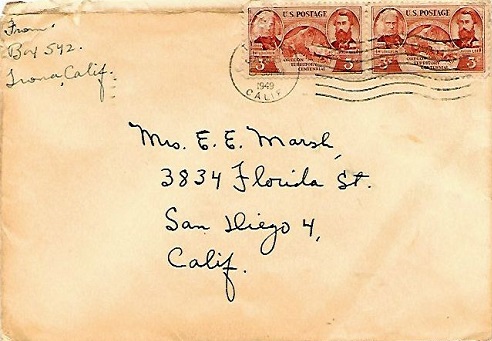 From:
Box 542.
Trona, Calif.
U.S. POSTAGE
OREGON
TERRITORY
CENTENNIAL
3¢ 3¢
U.S. POSTAGE
OREGON
TERRITORY
CENTENNIAL
3¢ 3¢
1949
CALIF.
Mrs. E. E. Marsh,
3834 Florida St.
San Diego 4,
Calif.